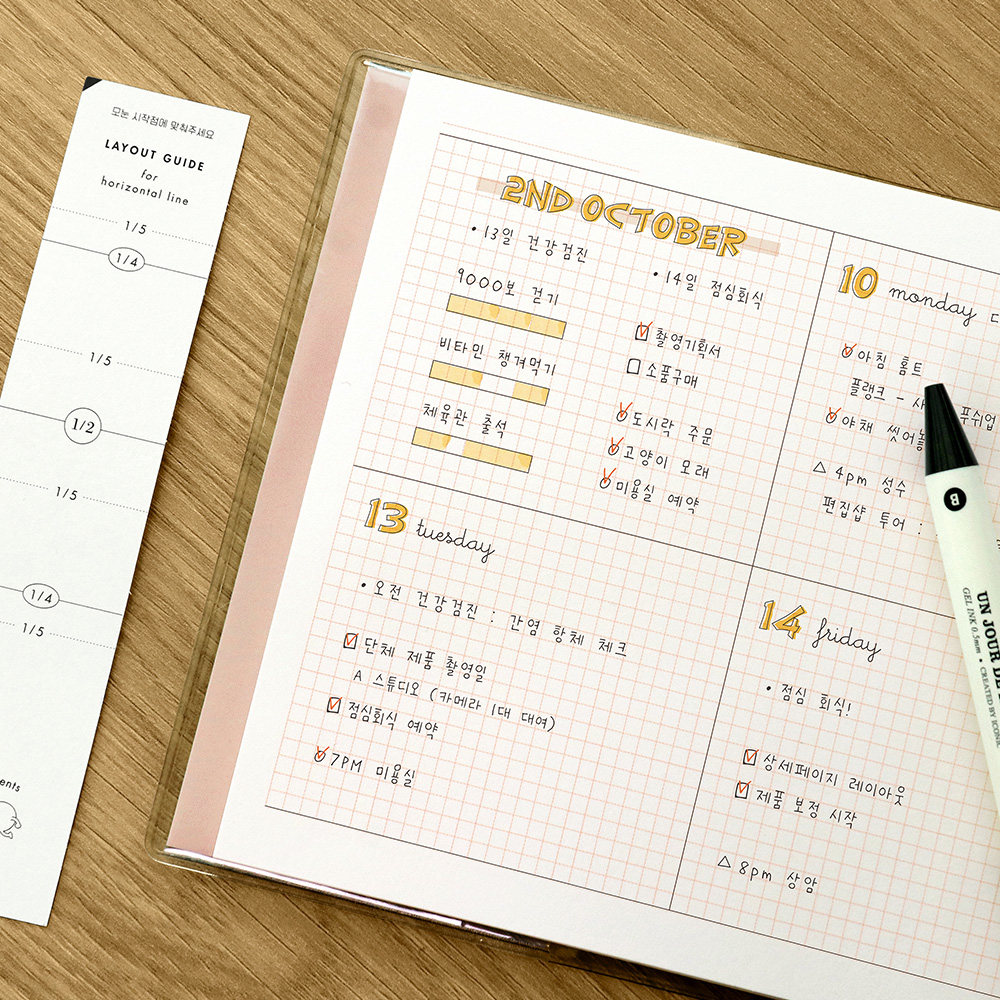 모눈 시작점에 맞춰주세요
LAYOUT GUIDE
for
horizontal line
1/5
1/4
1/5
1/2
1/5
1/4
1/5
2ND OCTOBER
• 13일 건강검진
9000보 걷기
비타민 챙겨먹기
체육관 출석
• 14일 점심회식
촬영기획서
소품구매
도시락 주문
고양이 모래
미용실 예약
10 monday
아침 홈트
플랭크 -
푸쉬업
야채
△ 4pm 성수
편집샵 투어 :
13 tuesday
• 오전 건강검진 : 간염 항체 체크
단체 제품 촬영일
A 스튜디오 (카메라 1대 대여)
점심회식 예약
7PM 미용실
14 friday
• 점심 회식!
상세페이지 레이아웃
제품 보정 시작
△ 8pm 상암
B
UN JOUR DE
GEL INK 0.5mm • CREATED BY ICONIC